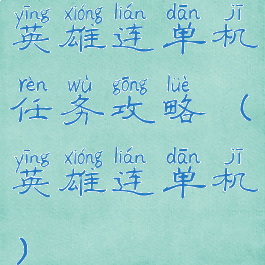 yīng xióng lián dān jī
英雄连单机
rèn wù gōng lüè
任务攻略（
yīng xióng lián dān jī
英雄连单机
）